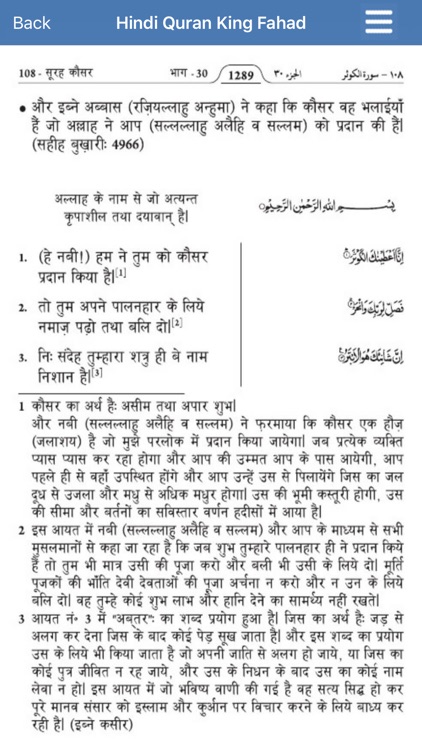 Back
Hindi Quran King Fahad
108 - सूरह कौसर
भाग - 30
1289
الجزء ٣٠
١٠٨ - سورة الكوثر
• और इब्ने अब्बास (रज़ियल्लाहु अन्हुमा) ने कहा कि कौसर वह भलाईयाँ
हैं जो अल्लाह ने आप (सल्लल्लाहु अलैहि व सल्लम) को प्रदान की हैं।
(सहीह बुख़ारीः 4966)
अल्लाह के नाम से जो अत्यन्त
कृपाशील तथा दयावान् है।
بِسْمِ اللهِ الرَّحْمٰنِ الرَّحِيْمِ
1. (हे नबी!) हम ने तुम को कौसर
प्रदान किया है।[1]
إِنَّا أَعْطَيْنَكَ الْكَوْثَرَ
2. तो तुम अपने पालनहार के लिये
नमाज़ पढ़ो तथा बलि दो।[2]
فَصَلِّ لِرَبِّكَ وَانْحَرْ
3. निः संदेह तुम्हारा शत्रु ही बे नाम
निशान है।[3]
إِنَّ شَانِئَكَ هُوَ الْأَبْتَرُ
1 कौसर का अर्थ हैः असीम तथा अपार शुभ।
और नबी (सल्लल्लाहु अलैहि व सल्लम) ने फ़रमाया कि कौसर एक हौज़
(जलाशय) है जो मुझे परलोक में प्रदान किया जायेगा। जब प्रत्येक व्यक्ति
प्यास प्यास कर रहा होगा और आप की उम्मत आप के पास आयेगी, आप
पहले ही से वहाँ उपस्थित होंगे और आप उन्हें उस से पिलायेंगे जिस का जल
दूध से उजला और मधु से अधिक मधुर होगा। उस की भूमी कस्तूरी होगी, उस
की सीमा और बर्तनों का सविस्तार वर्णन हदीसों में आया है।
2 इस आयत में नबी (सल्लल्लाहु अलैहि व सल्लम) और आप के माध्यम से सभी
मुसलमानों से कहा जा रहा है कि जब शुभ तुम्हारे पालनहार ही ने प्रदान किये
हैं तो तुम भी मात्र उसी की पूजा करो और बली भी उसी के लिये दो। मूर्ति
पूजकों की भाँति देवी देवताओं की पूजा अर्चना न करो और न उन के लिये
बलि दो। वह तुम्हे कोई शुभ लाभ और हानि देने का सामर्थ्य नहीं रखते।
3 आयत नं॰ 3 में "अब्तर" का शब्द प्रयोग हुआ है। जिस का अर्थ हैः जड़ से
अलग कर देना जिस के बाद कोई पेड़ सूख जाता है। और इस शब्द का प्रयोग
उस के लिये भी किया जाता है जो अपनी जाति से अलग हो जाये, या जिस का
कोई पुत्र जीवित न रह जाये, और उस के निधन के बाद उस का कोई नाम
लेवा न हो। इस आयत में जो भविष्य वाणी की गई है वह सत्य सिद्ध हो कर
पूरे मानव संसार को इस्लाम और कुर्आन पर विचार करने के लिये बाध्य कर
रही है। (इब्ने कसीर)